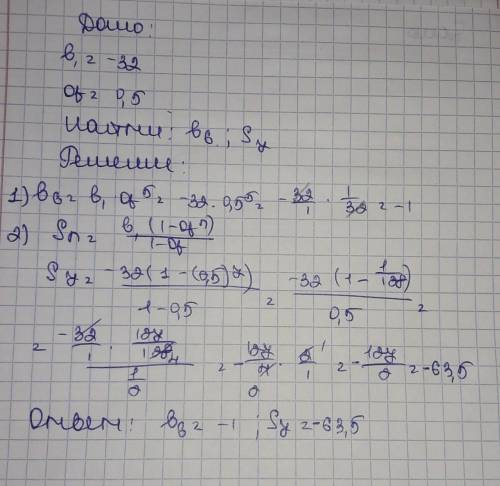 Дано:
b₁ = -32
q = 0,5
Найти: b₆ ; S₇
Решение:
1) b₆ = b₁ q⁵ = -32 · 0,5⁵ = -32/1 · 1/32 = -1
2) Sn = b₁(1-qⁿ)/1-q
S₇ = -32(1-(0,5)⁷)/1-0,5 = -32(1-1/128)/0,5 =
= -32/1 · 127/128₄ / 1/2 = -127/4₂ · 2¹/1 = -127/2 = -63,5
Ответ: b₆ = -1 ; S₇ = -63,5